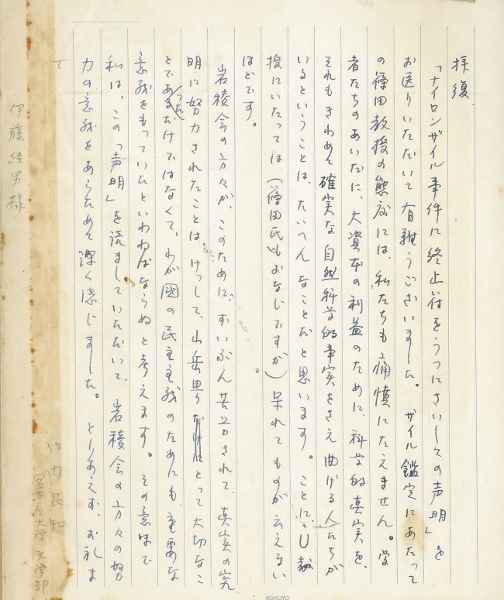 拝復
「ナイロンザイル事件に終止符をうつにさいしての声明」を
お送りいただいて有難うございました。ザイル鑑定にあたって
の篠田教授の態度には、私たちも痛憤にたえません。学
者たちのあいだに、大資本の利益のために、科学的真実を、
それもきわめて確実な自然科学的事実をさえ曲げる人たちが
いるということは、たいへんなことだと思います。ことに、U教
授にいたっては(篠田氏もおなじですが)呆れてものが云えない
ほどです。
岩稜会の方々が、このために、ずいぶん苦労されて、真実の究
明に努力されたことは、けっして、山岳界にとって大切なこ
とであっただけではなくて、わが國の民主主義のためにも重要な
意義をもっていたといわねばならぬと考えます。その意味で
私は、この「声明」を読ましていただいて、岩稜会の方々の努
力の意義をあらためて深く感じました。とりあえず、お礼ま
で
竹内良知
名古屋大学文学部
伊藤経男様
KOKUYO